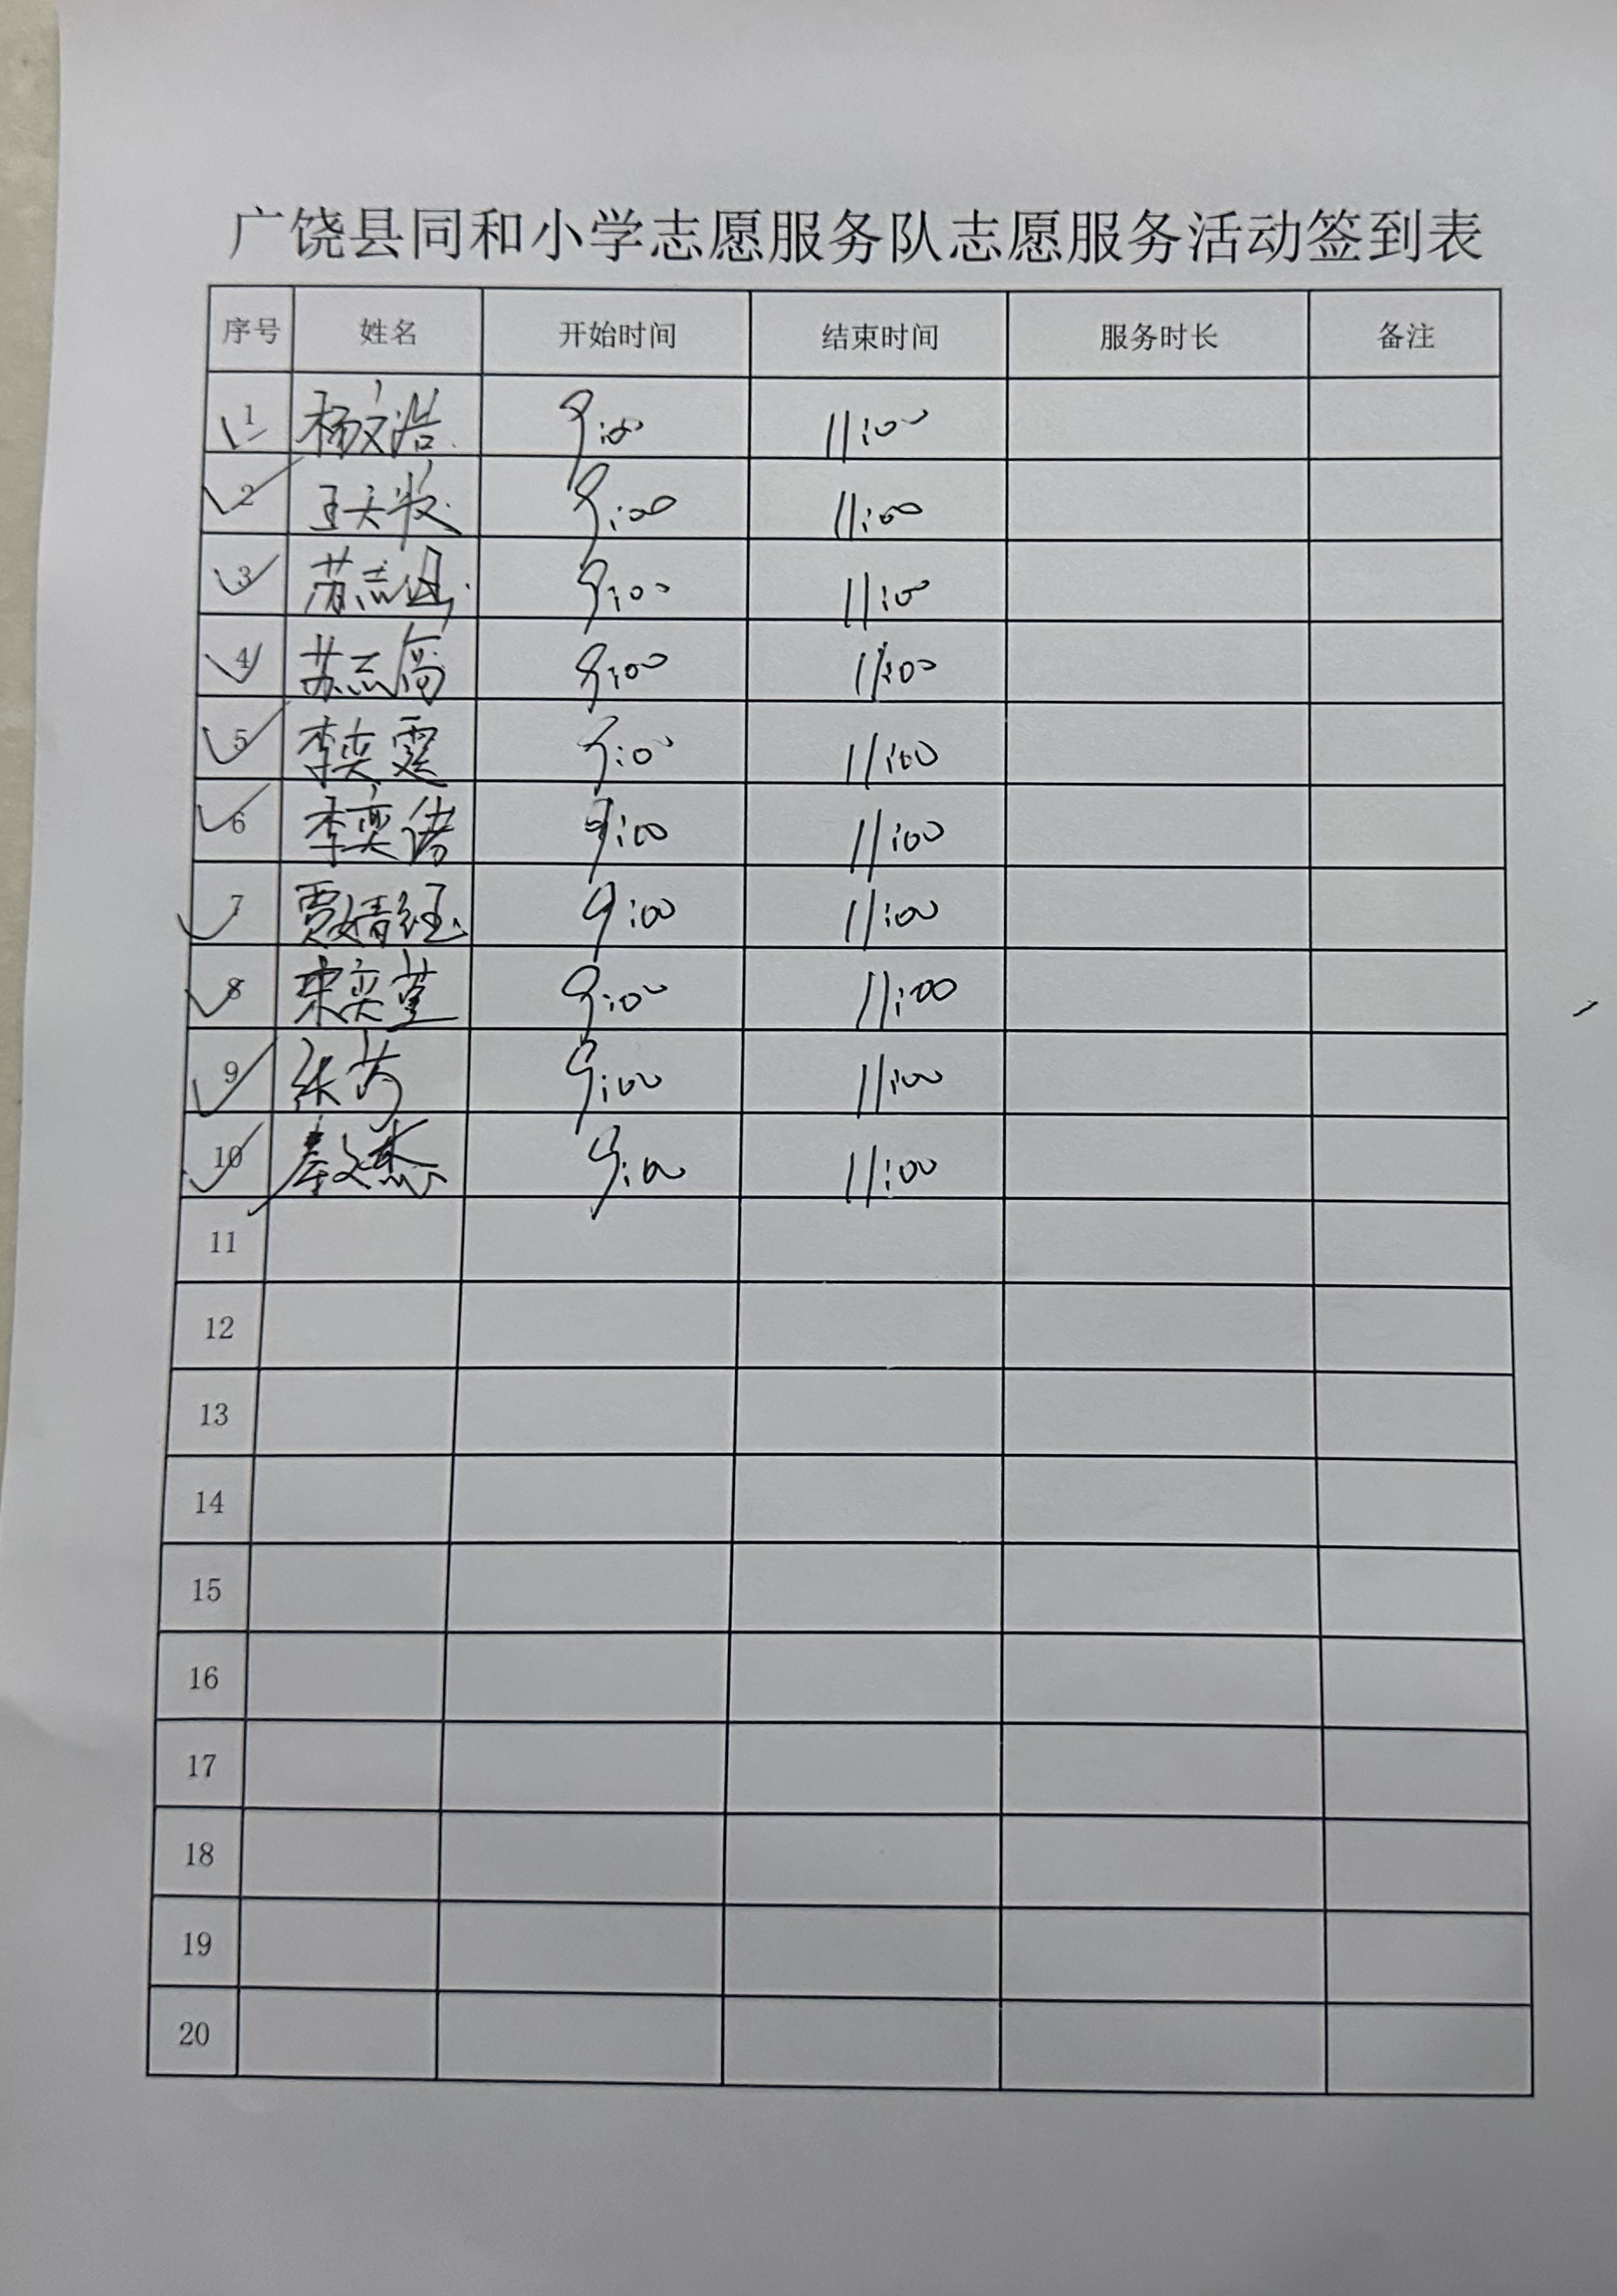 广饶县同和小学志愿服务队志愿服务活动签到表
序号 姓名 开始时间 结束时间 服务时长 备注
1 杨文浩 9:00 11:00
2 王天牧 9:00 11:00
3 苏志 9:00 11:00
4 苏志高 9:00 11:00
5 李奕霆 9:00 11:00
6 李奕诺 9:00 11:00
7 贾婧钰 9:00 11:00
8 宋奕萱 9:00 11:00
9 张芮 9:00 11:00
10 文杰 9:00 11:00
11
12
13
14
15
16
17
18
19
20